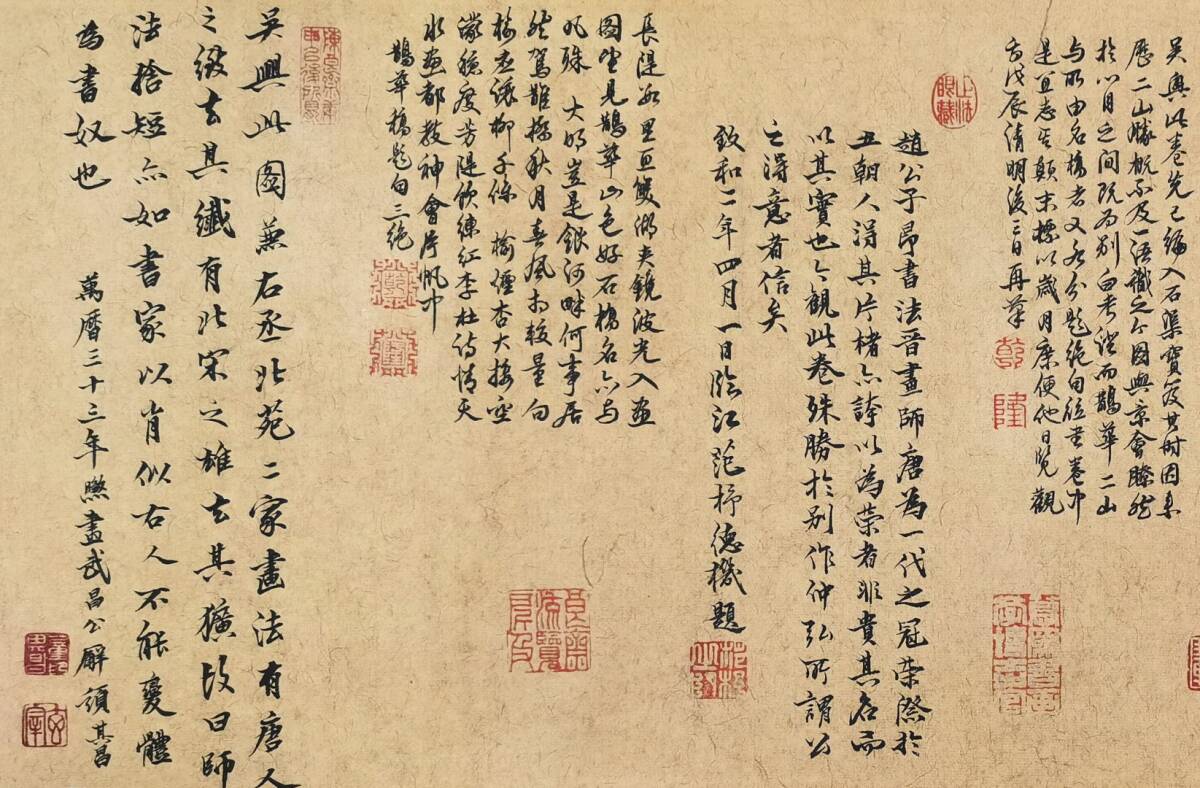 吴興此卷先已编入石渠寶笈其时因未
歷二山勝概不及一語識之今圖與景會瞭然
於心目之間既为别白考證而鵲華二山
与所由名橋者又各分題绝句並書卷中
是宜志其顛末標以歲月庶便他日覽觀
云戊辰清明後三日再筆
乾
隆
趙公子昂書法晉畫師唐為一代之冠荣際於
五朝人得其片楮亦誇以為荣者非貴其名而
以其實也今觀此卷殊勝於别作仲弘所謂公
之得意者信矣
致和二年四月一日臨江范梈德機題
長隄数里亘雙湖夾鏡波光入畫
圖望見鵲華山色好石橋名亦与
凡殊 大明豈是銀河畔何事居
然駕鵲橋秋月春風初較量白
榆應讓柳千條 榆烟杏火接空
濛穩度芳隄飲練紅李杜詩情天
水畫都教神會片帆中
鵲華橋題句三絕
吳興此圖兼右丞北苑二家畫法有唐人
之緻去其纖有北宋之雄去其獷故曰師
法捨短亦如書家以肖似古人不能變體
為書奴也 萬曆三十三年畫武昌公廨題其昌